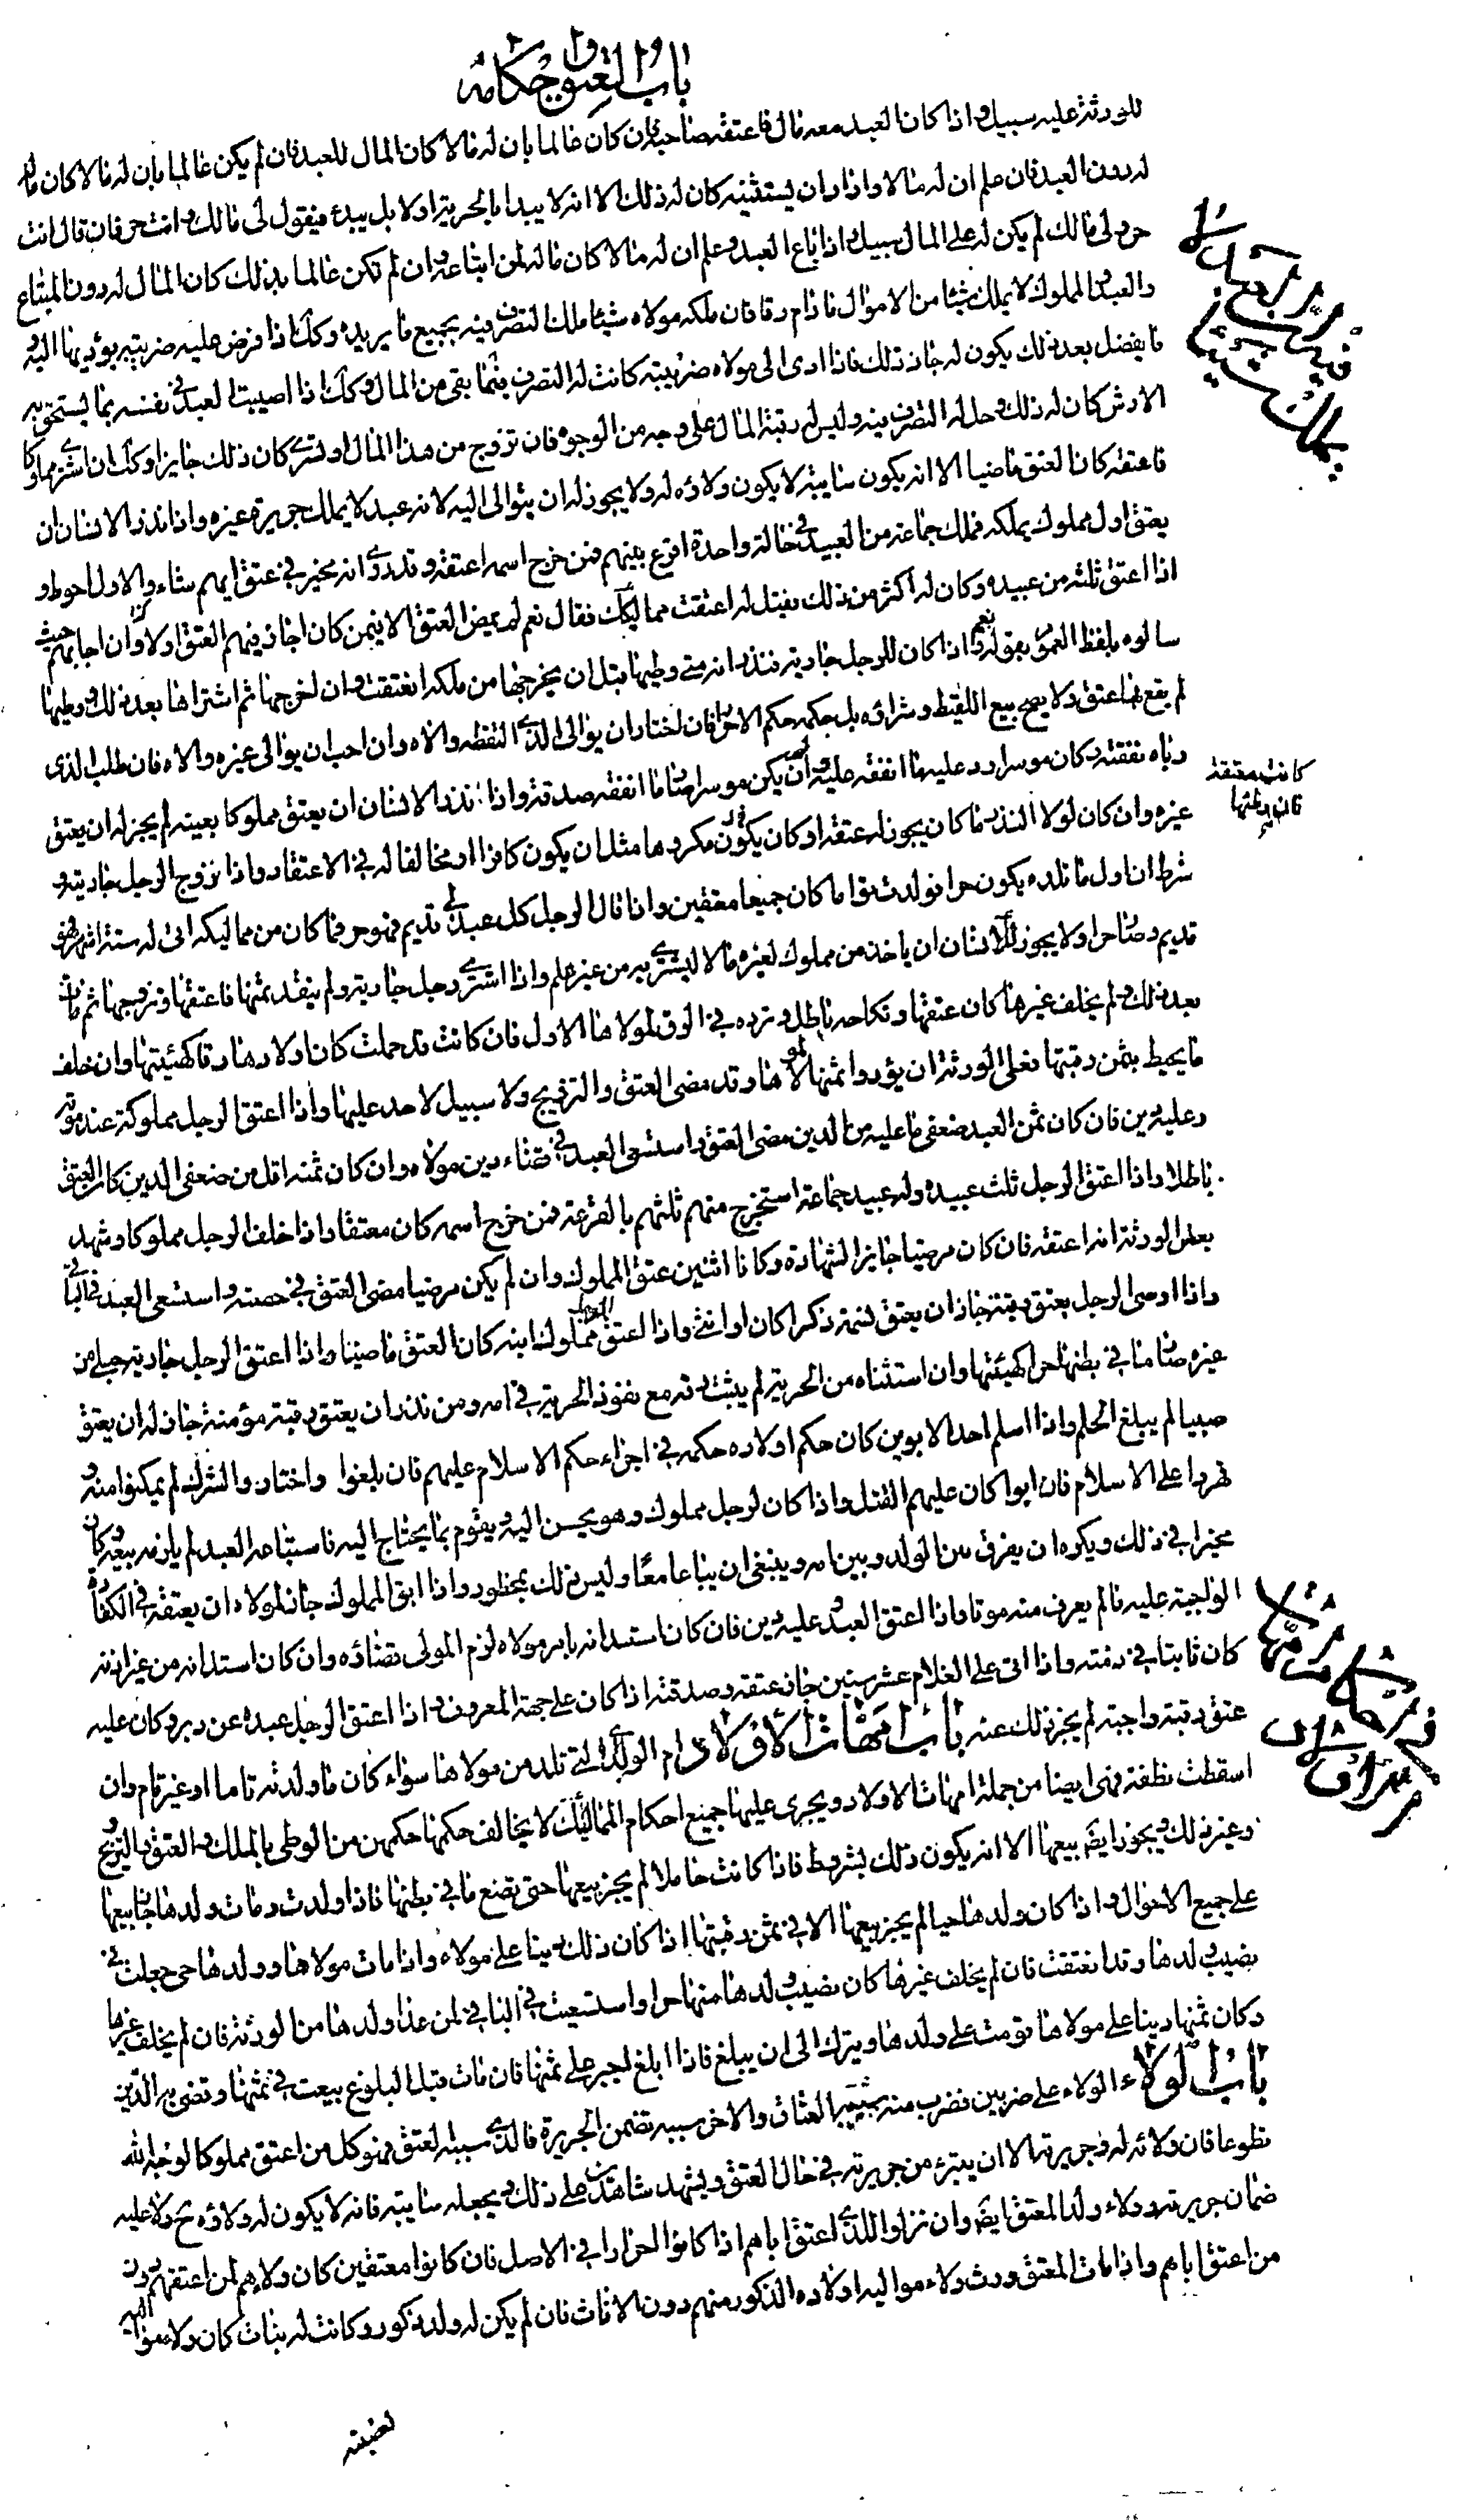 باب العتق واحكامه
للورثة عليه سبيل واذا كان العبد معه مال فاعتقه صاحبه فان كان عالما بان له مالا كان المال للعبد فان لم يكن عالما بان له مالا كان ماله
له دون العبد فان علم ان له مالا واذا راد ان يستثنيه كان له ذلك الا انه لا يبدا بالحرية اولا بل يبدء فيقول لى مالك وانت حر فان قال انت
حر ولى مالك لم يكن له على المال سبيل واذا باع العبد وعلم ان له مالا كان ماله لمن ابتاعه وان لم تكن عالما بذلك كان المال له دون المبتاع
والعبد المملوك لا يملك شيئا من الاموال مادام رقا فان ملكه مولاه شيئا ملك التصرف فيه بجميع ما يريده وكك اذا فرض عليه ضريبة يؤديها اليه و
ما يفضل بعد ذلك يكون له جاز ذلك فاذا ادى الى مولاه ضريبته كانت له التصرف فيما بقى من المال وكك اذا اصيب العبد فى نفسه بما يستحق به
الارش كان له ذلك وحل له التصرف فيه وليس له رقبة المال على وجه من الوجوه فان تزوج من هذا المال او تسرى كان ذلك جايزا وكك ان اشترى مملوكا
فاعتقه كان العتق ماضيا الا انه يكون سايبة لا يكون ولاؤه له ولا يجوز له ان يتوالى اليه لانه عبد لا يملك جريرة غيره واذا نذر الانسان ان
يعتق اول مملوك يملكه فملك جماعة من العبيد فى حالة واحدة اقرع بينهم فمن خرج اسمه اعتقه وقد روى انه مخير فى عتق ايهم شاء والاول احوط و
اذا اعتق ثلثة من عبيده وكان له اكثر من ذلك فقيل له اعتقت مماليكك فقال نعم لم يمض العتق الا فيمن كان اجاز فيهم العتق اولا وان اجابهم حيث
سالوه بلفظ العموم بقوله نعم واذا كان للرجل جارية فنذر انه متى وطيها قبل ان يخرجها من ملكه انعتقت وان اخرجها ثم اشتراها بعد ذلك ووطيها
لم يقع لها عتق ولا يصح بيع اللقيط وشراؤه بل حكمه حكم الاحرار فان اختار ان يوالى الذى التقطه والاه وان احب ان يوالى غيره والاه فان طلب الذى
رباه نفقته وكان موسرا رد عليه ما انفقه عليه وان لم يكن موسرا صار ما انفقه صدقة واذا نذر الانسان ان يعتق مملوكا بعينه لم يجز له ان يعتق
غيره وان كان لولا النذر ما كان يجوز له عتقه او كان يكون مكروها مثل ان يكون كافرا او مخالفا له فى الاعتقاد واذا تزوج الرجل جارية و
شرط ان اول ما تلده يكون حرا فولدت تواما كان جميعا معتقين واذا قال الرجل كل عبد لى قديم فهو حر فما كان من مماليكه اتى له ستة اشهر فهو
قديم وصار حرا ولا يجوز للانسان ان ياخذ من مملوك لغيره مالا ليشتريه من غير علم واذا اشترى رجل جارية ولم ينقد ثمنها فاعتقها وتزوجها ثم مات
بعد ذلك ولم يخلف غيرها كان عتقها ونكاحه باطل وترده فى الرق لمولاها الاول فان كانت قد حملت كان اولادها رقا كهيئتها وان خلف
ما يحيط بثمن رقبتها فعلى الورثة ان يؤدوا ثمنها لمولاها وقد مضى العتق والتزويج ولا سبيل لاحد عليها واذا اعتق الرجل مملوكه عند موته
وعليه دين فان كان ثمن العبد ضعفى ما عليه من الدين مضى العتق واستسعى العبد فى قضاء دين مولاه وان كان ثمنه اقل من ضعفى الدين كان العتق
باطلا واذا اعتق الرجل ثلث عبيده وله عبيد جماعة استخرج منهم ثلثهم بالقرعة فمن خرج اسمه كان معتقا واذا خلف الرجل مملوكا وشهد
بعض الورثة انه اعتقه فان كان مرضيا جايز الشهادة وكانا اثنين عتق المملوك وان لم يكن مرضيا مضى العتق فى حصته واستسعى العبد فى الباقى
واذا اوصى الرجل بعتق رقبة جاز ان يعتق نسمة ذكرا كان او انثى واذا اعتق الرجل مملوك ابنه كان العتق ماضيا واذا اعتق الرجل جارية حبلى من
غيره صار ما فى بطنها حرا كهيئتها وان استثناه من الحرية لم يثبت رقه مع نفوذ الحرية فى امه ومن نذر ان يعتق رقبة مؤمنة جاز له ان يعتق
صبيا لم يبلغ الحلم واذا اسلم احد الابوين كان حكم اولاده حكمه فى اجراء حكم الاسلام عليهم فان بلغوا واختاروا الشرك لم يمكنوا منه و
قهروا على الاسلام فان ابوا كان عليهم القتل واذا كان لرجل مملوك وهو يحسن اليه ويقوم بما يحتاج اليه فاستباعه العبد لم يلزمه بيعه وكان
مخيرا فى ذلك ويكره ان يفرق بين الولد وبين امه وينبغى ان يباعا معا وليس ذلك بمحظور واذا ابق المملوك جاز لمولاه ان يعتقه فى الكفارة
الواجبة عليه ما لم يعرف منه موتا واذا اعتق العبد وعليه دين فان كان استدانه بامر مولاه لزم المولى قضاؤه وان كان استدانه من غير اذنه
كان ثابتا فى ذمته واذا اتى على الغلام عشر سنين جاز عتقه وصدقته اذا كان على جهة المعروف واذا اعتق الرجل عبده عن دبر وكان عليه
عتق رقبة واجبة لم يجز ذلك عنه باب امهات الاولاد ام الولد التى تلد من مولاها سواء كان ما ولدته تاما او غير تام وان
اسقطت نطفة فهى ايضا من جملة امهات الاولاد ويجرى عليها جميع احكام المماليك لا يخالف حكمها حكمهن من الوطى بالملك والعتق والتزويج
وغير ذلك ويجوز ايضا بيعها الا انه يكون ذلك بشروط فاذا كانت حاملا لم يجز بيعها حتى تضع ما فى بطنها فاذا ولدت ومات ولدها جاز بيعها
على جميع الاحوال واذا كان ولدها حيا لم يجز بيعها الا فى ثمن رقبتها اذا كان ذلك دينا على مولاه واذا مات مولاها وولدها حى جعلت فى
نصيب ولدها وقد انعتقت فان لم يخلف غيرها كان نصيب ولدها منها حرا واستسعيت فى الباقى لمن عدا ولدها من الورثة فان لم يخلف غيرها
وكان ثمنها دينا على مولاها قومت على ولدها ويترك الى ان يبلغ فاذا بلغ اجبر على ثمنها فان مات قبل البلوغ بيعت فى ثمنها وقضى به الدين
باب الولاء الولاء على ضربين فضرب منه سببه العتاق والاخر سببه تضمن الجريرة فالذى سببه العتق فهو كل من اعتق مملوكا لوجه الله
تطوعا فان ولائه له وجريرته الا ان يتبرء من جريرته فى حال العتق ويشهد شاهدان على ذلك ويجعله سايبة فانه لا يكون له ولاؤه ح ولا عليه
ضمان جريرته وولاء ولد المعتق ايضا وان نزلوا للذى اعتق اباهم اذا كانوا احرارا فى الاصل فان كانوا معتقين كان ولاءهم لمن اعتقهم دون
من اعتق اباهم واذا مات المعتق ورث ولاء مواليه اولاده الذكور منهم دون الاناث فان لم يكن له ولد ذكور وكانت له بنات كان ولاء مواليه
كانت معتقة
فان وطئها
لعصبته